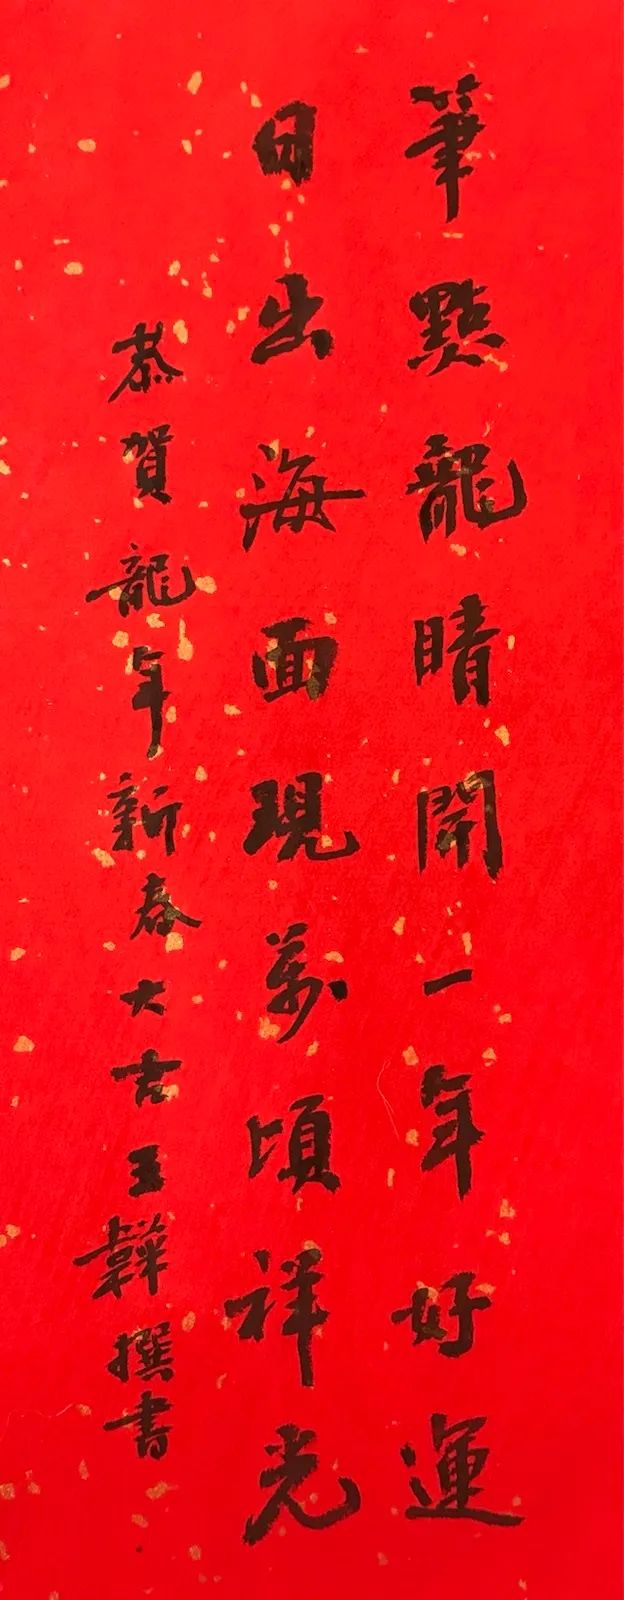 筆點龍睛開一年好運
日出海面現萬頃祥光
恭賀龍年新春大吉王韡撰書